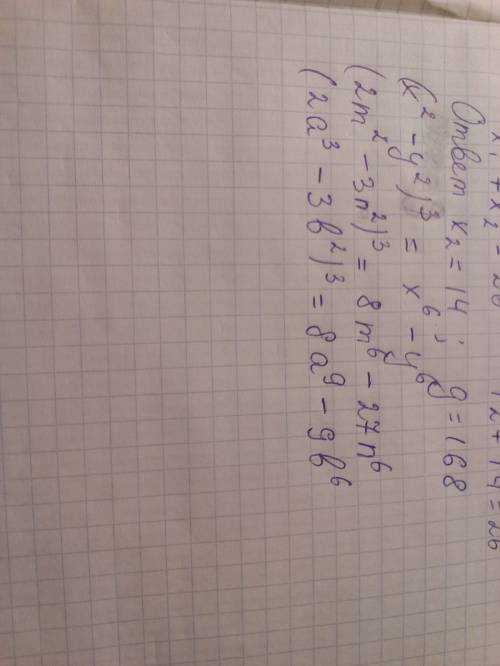 x₁ + x₂ = 26 12 + 14 = 26
Ответ x₂ = 14; g = 168
(x² - y²)³ = x⁶ - y⁶
(2m² - 3n²)³ = 8m⁶ - 27n⁶
(2a³ - 3b²)³ = 8a⁹ - 9b⁶